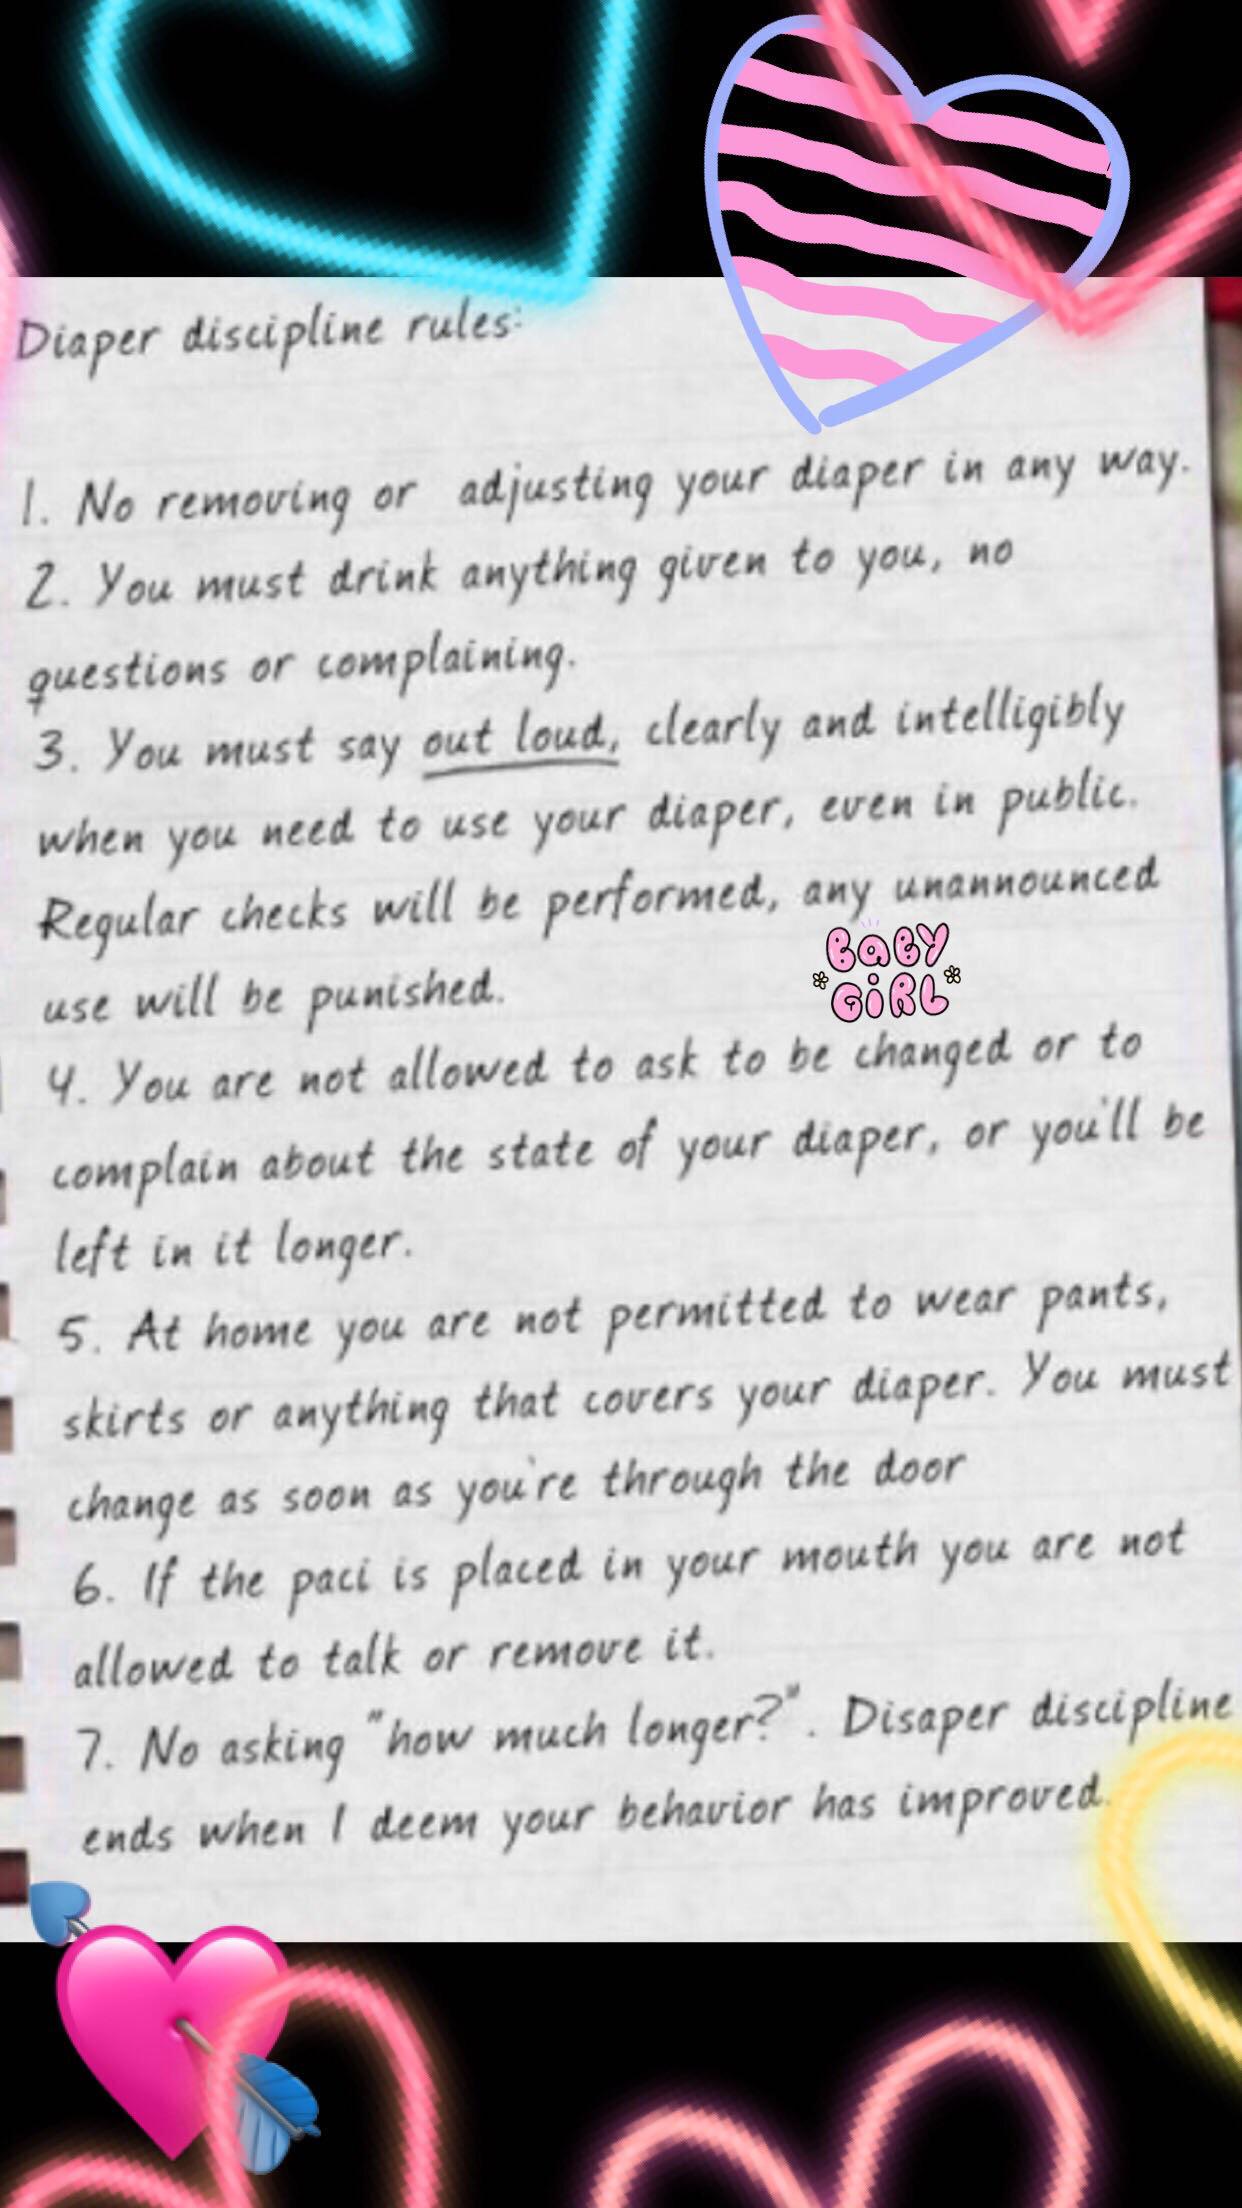 Diaper discipline rules:
1. No removing or adjusting your diaper in any way.
2. You must drink anything given to you, no
questions or complaining.
3. You must say out loud, clearly and intelligibly
when you need to use your diaper, even in public.
Regular checks will be performed, any unannounced
use will be punished.
BABY
GiRL
4. You are not allowed to ask to be changed or to
complain about the state of your diaper, or you'll be
left in it longer.
5. At home you are not permitted to wear pants,
skirts or anything that covers your diaper. You must
change as soon as you're through the door
6. If the paci is placed in your mouth you are not
allowed to talk or remove it.
7. No asking "how much longer?". Disaper discipline
ends when I deem your behavior has improved.